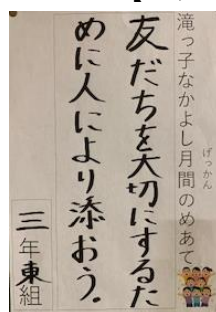 滝っ子なかよし月間のめあて
げっかん
友だちを大切にするた
めに人により添おう。
三年東組